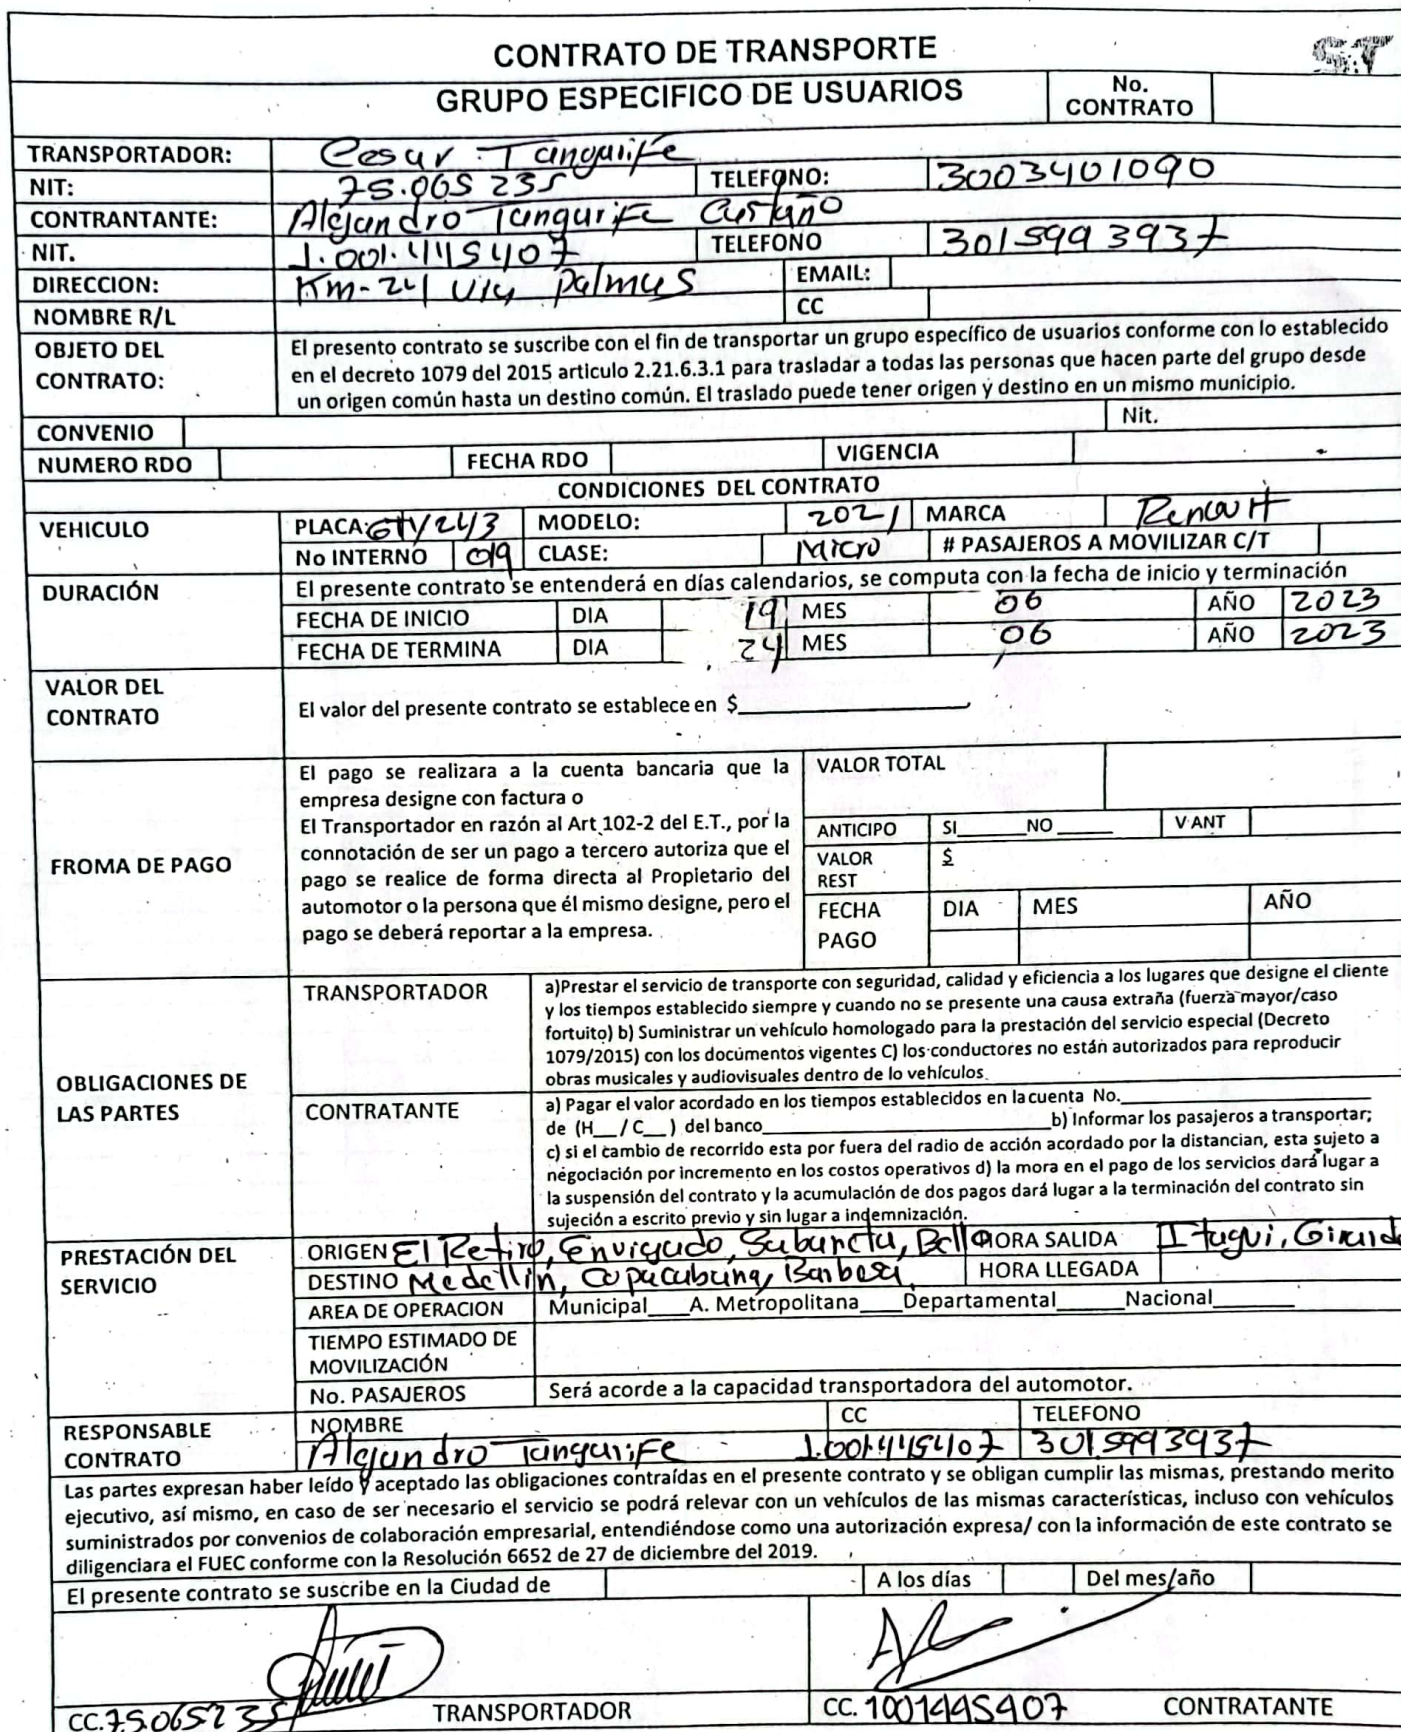 CONTRATO DE TRANSPORTE
ST
GRUPO ESPECIFICO DE USUARIOS
No. CONTRATO
TRANSPORTADOR: Cesar Tangarife
NIT: 75.065 235 TELEFONO: 3003401090
CONTRANTANTE: Alejandro Tangarife Castaño
NIT. 1.001.445407 TELEFONO 3015993937
DIRECCION: Km-24 via palmas EMAIL:
NOMBRE R/L CC
OBJETO DEL CONTRATO:
El presento contrato se suscribe con el fin de transportar un grupo específico de usuarios conforme con lo establecido
en el decreto 1079 del 2015 articulo 2.21.6.3.1 para trasladar a todas las personas que hacen parte del grupo desde
un origen común hasta un destino común. El traslado puede tener origen y destino en un mismo municipio.
CONVENIO Nit.
NUMERO RDO FECHA RDO VIGENCIA
CONDICIONES DEL CONTRATO
VEHICULO PLACA: GTY243 MODELO: 2021 MARCA Renault
No INTERNO 019 CLASE: Micro # PASAJEROS A MOVILIZAR C/T
DURACIÓN El presente contrato se entenderá en días calendarios, se computa con la fecha de inicio y terminación
FECHA DE INICIO DIA 19 MES 06 AÑO 2023
FECHA DE TERMINA DIA 24 MES 06 AÑO 2023
VALOR DEL CONTRATO
El valor del presente contrato se establece en $
FROMA DE PAGO
El pago se realizara a la cuenta bancaria que la
empresa designe con factura o
El Transportador en razón al Art 102-2 del E.T., por la
connotación de ser un pago a tercero autoriza que el
pago se realice de forma directa al Propietario del
automotor o la persona que él mismo designe, pero el
pago se deberá reportar a la empresa.
VALOR TOTAL
ANTICIPO SI____NO____ V·ANT
VALOR REST $
FECHA PAGO DIA MES AÑO
OBLIGACIONES DE LAS PARTES
TRANSPORTADOR
a)Prestar el servicio de transporte con seguridad, calidad y eficiencia a los lugares que designe el cliente
y los tiempos establecido siempre y cuando no se presente una causa extraña (fuerza mayor/caso
fortuito) b) Suministrar un vehículo homologado para la prestación del servicio especial (Decreto
1079/2015) con los documentos vigentes C) los conductores no están autorizados para reproducir
obras musicales y audiovisuales dentro de lo vehículos.
CONTRATANTE
a) Pagar el valor acordado en los tiempos establecidos en la cuenta No.____
de (H__/C__) del banco____b) Informar los pasajeros a transportar;
c) si el cambio de recorrido esta por fuera del radio de acción acordado por la distancian, esta sujeto a
negociación por incremento en los costos operativos d) la mora en el pago de los servicios dará lugar a
la suspensión del contrato y la acumulación de dos pagos dará lugar a la terminación del contrato sin
sujeción a escrito previo y sin lugar a indemnización.
PRESTACIÓN DEL SERVICIO
ORIGEN El Retiro, Envigado, Sabaneta, Bello HORA SALIDA Itagui, Girardo
DESTINO Medellin, Copacabana, Barbosa, HORA LLEGADA
AREA DE OPERACION Municipal___A. Metropolitana___Departamental____Nacional____
TIEMPO ESTIMADO DE MOVILIZACIÓN
No. PASAJEROS Será acorde a la capacidad transportadora del automotor.
RESPONSABLE CONTRATO
NOMBRE CC TELEFONO
Alejandro Tangarife 1.001.445407 3015993937
Las partes expresan haber leído y aceptado las obligaciones contraídas en el presente contrato y se obligan cumplir las mismas, prestando merito
ejecutivo, así mismo, en caso de ser necesario el servicio se podrá relevar con un vehículos de las mismas características, incluso con vehículos
suministrados por convenios de colaboración empresarial, entendiéndose como una autorización expresa/ con la información de este contrato se
diligenciara el FUEC conforme con la Resolución 6652 de 27 de diciembre del 2019.
El presente contrato se suscribe en la Ciudad de A los días Del mes/año
CC. 75.065235 TRANSPORTADOR CC. 1001445407 CONTRATANTE